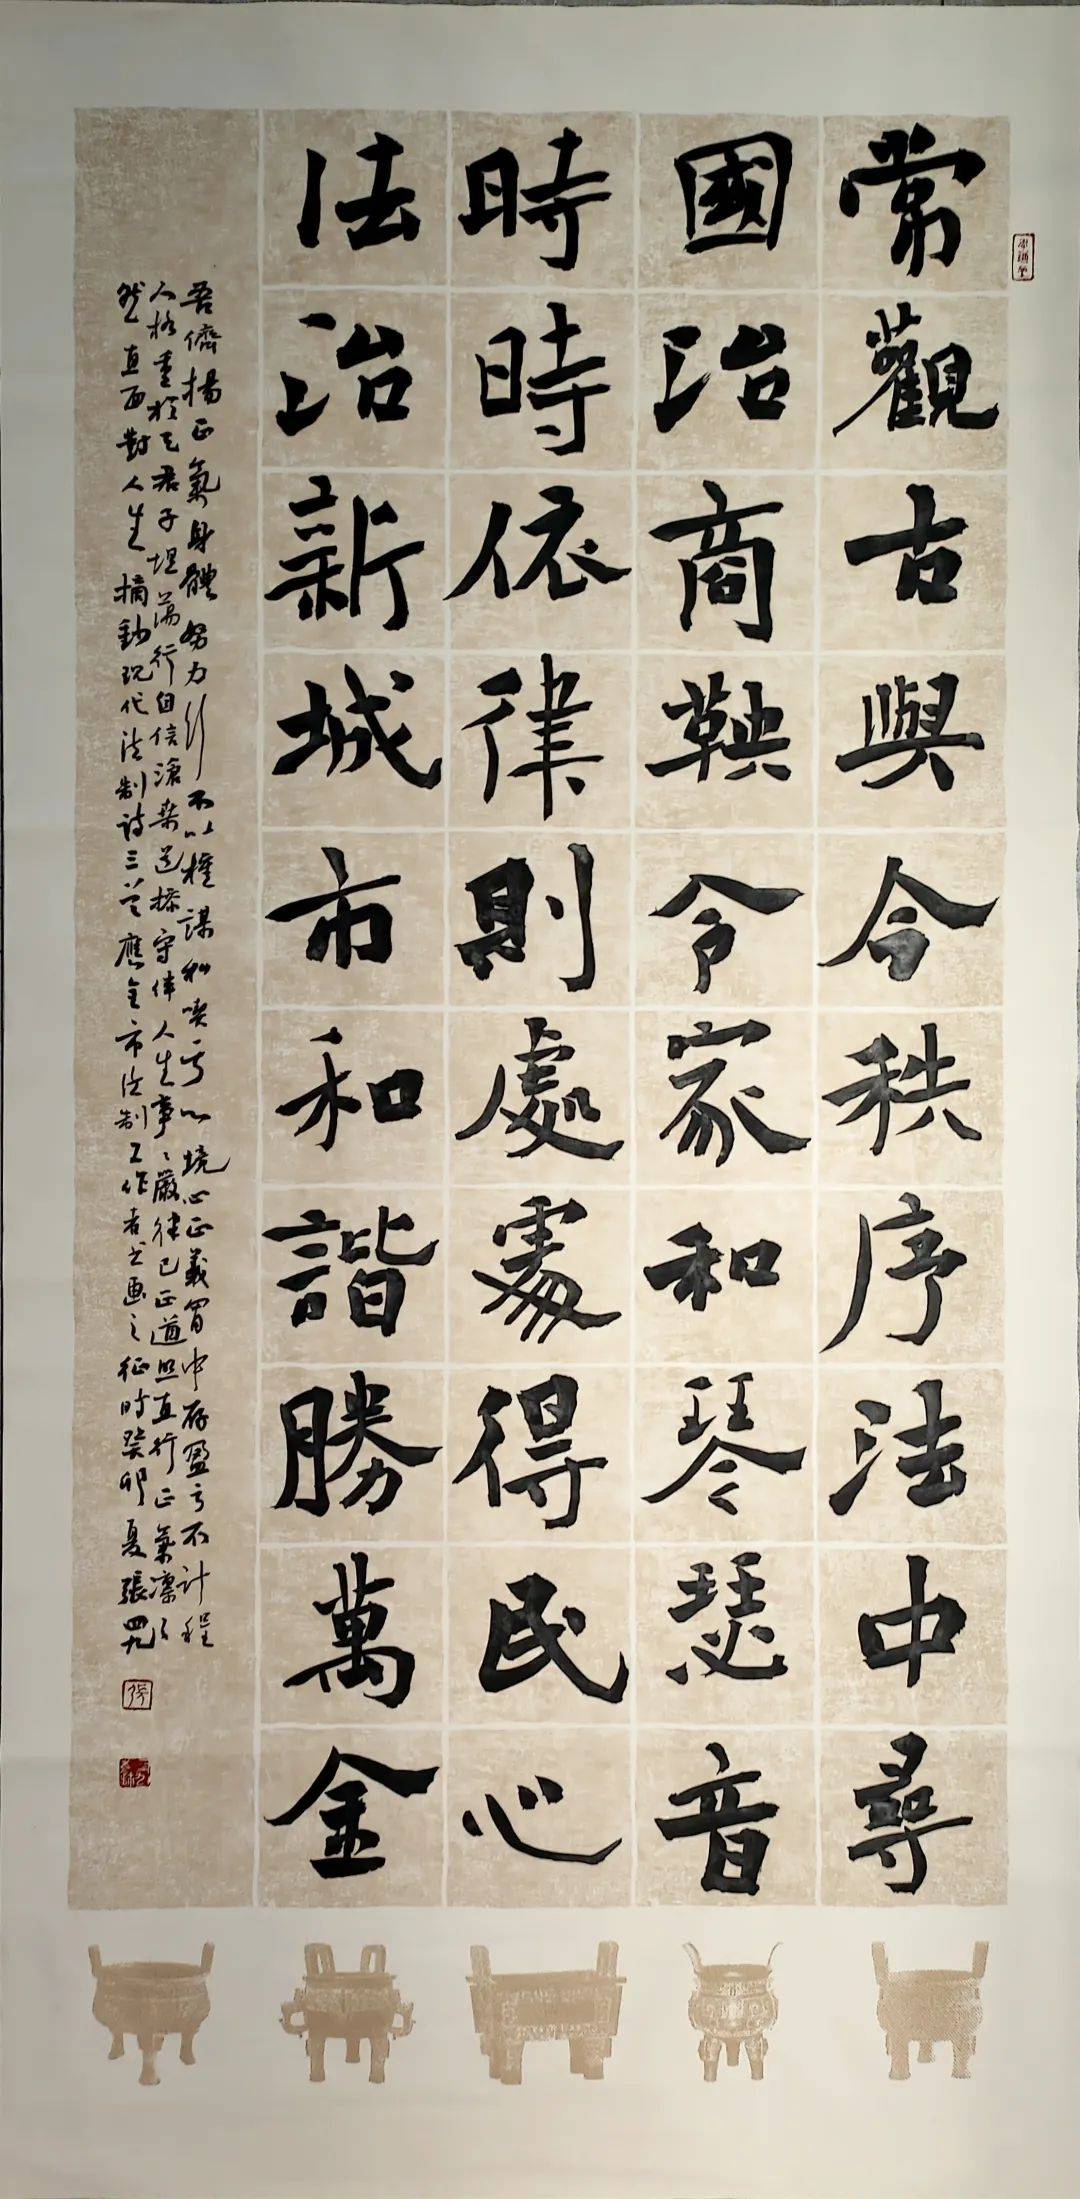 常觀古與今秩序法中尋
國治商鞅令家和琴瑟音
時時依律則處處得民心
法治新城市和諧勝萬金
吾儕揚正氣身體努力行不以權謀私喫亏心境心正義胷中存盈亏不計程
人格重於天君子坦荡行自信滄桑道操守伴人生事事嚴律己正道照直行正氣凛凛
然直面對人生摘勤現代法制詩三首應全市法制工作者书画之征時癸卯夏張